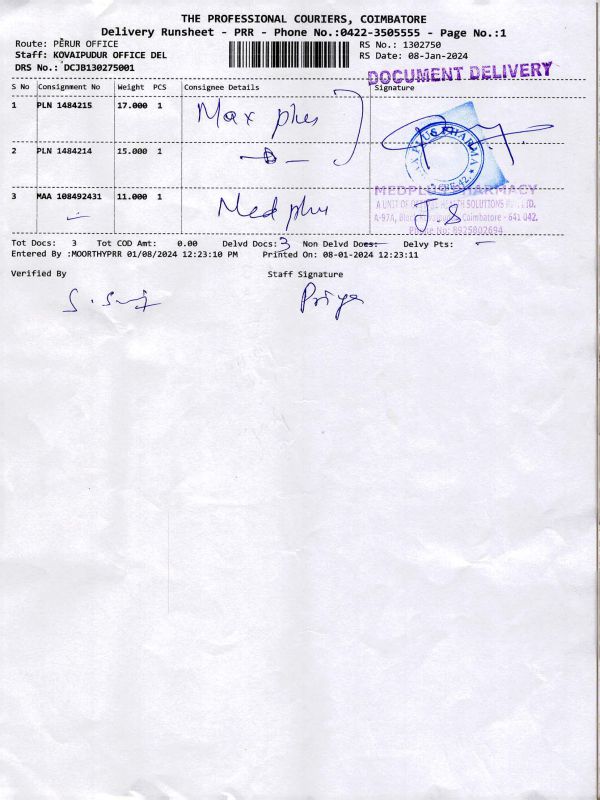 THE PROFESSIONAL COURIERS, COIMBATORE
Delivery Runsheet - PRR - Phone No.:0422-3505555 - Page No.:1
Route: PERUR OFFICE
RS No.: 1302750
Staff: KOVAIPUDUR OFFICE DEL
RS Date: 08-Jan-2024
DRS No.: DCJB130275001
DOCUMENT DELIVERY
S No Consignment No Weight PCS Consignee Details Signature
1 PLN 1484215 17.000 1 Max plus
2 PLN 1484214 15.000 1
PLUS PHARMA
3 MAA 108492431 11.000 1 Med plus
MEDPLUS PHARMACY
A UNIT OF HEALTH SOLUTIONS
A-97A, Coimbatore - 641 042.
Phone No: 8925802694
J.S
Tot Docs: 3 Tot COD Amt: 0.00 Delvd Docs: 3 Non Delvd Docs: - Delvy Pts: -
Entered By :MOORTHYPRR 01/08/2024 12:23:10 PM Printed On: 08-01-2024 12:23:11
Verified By Staff Signature
Priya